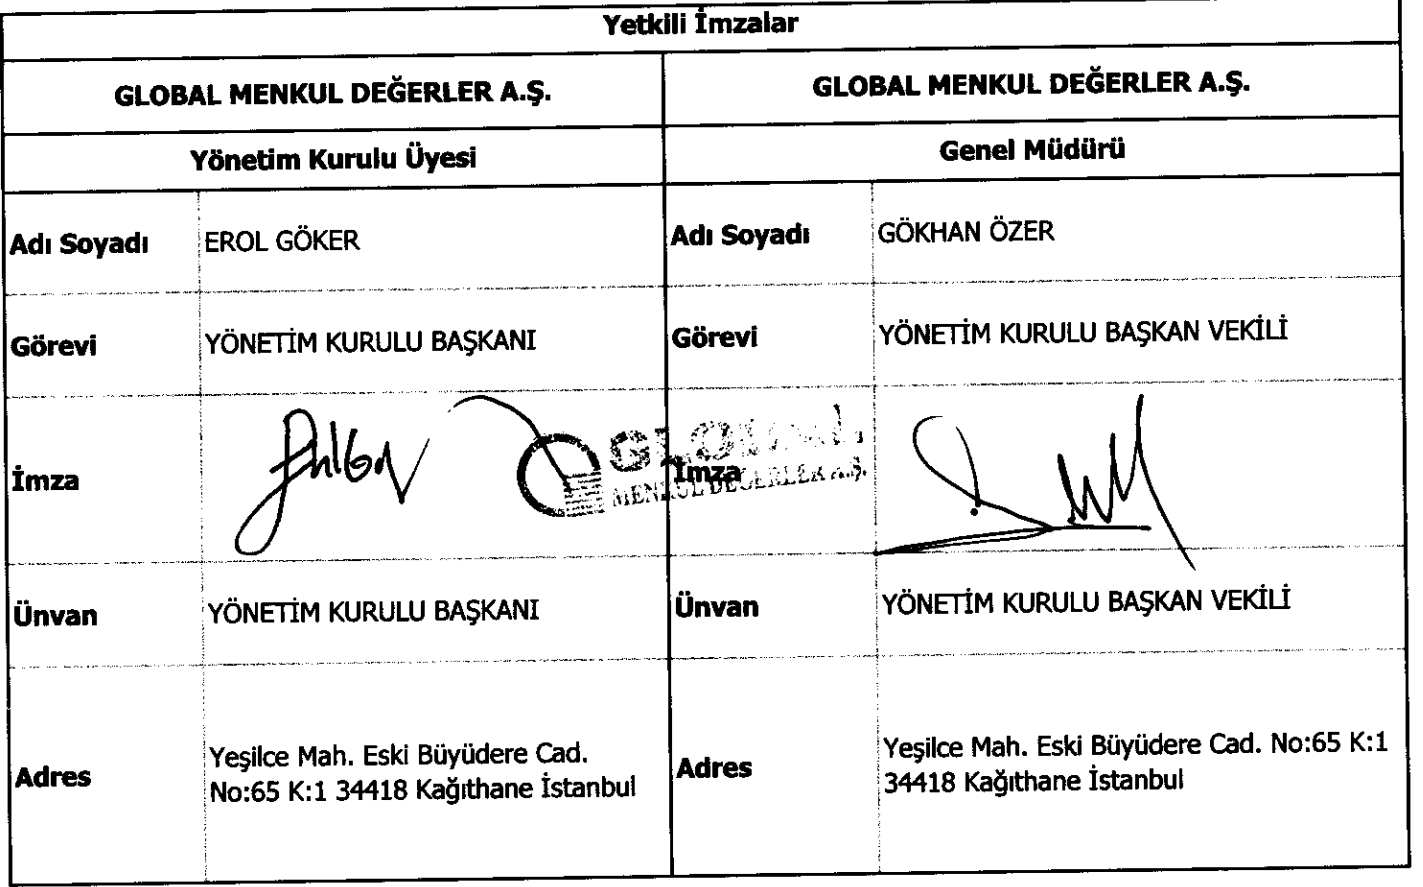 Yetkili İmzalar
GLOBAL MENKUL DEĞERLER A.Ş.
GLOBAL MENKUL DEĞERLER A.Ş.
Yönetim Kurulu Üyesi
Genel Müdürü
Adı Soyadı
EROL GÖKER
Adı Soyadı
GÖKHAN ÖZER
Görevi
YÖNETİM KURULU BAŞKANI
Görevi
YÖNETİM KURULU BAŞKAN VEKİLİ
İmza
GLOBAL
MENKUL DEĞERLER A.Ş.
İmza
Ünvan
YÖNETİM KURULU BAŞKANI
Ünvan
YÖNETİM KURULU BAŞKAN VEKİLİ
Adres
Yeşilce Mah. Eski Büyüdere Cad.
No:65 K:1 34418 Kağıthane İstanbul
Adres
Yeşilce Mah. Eski Büyüdere Cad. No:65 K:1
34418 Kağıthane İstanbul